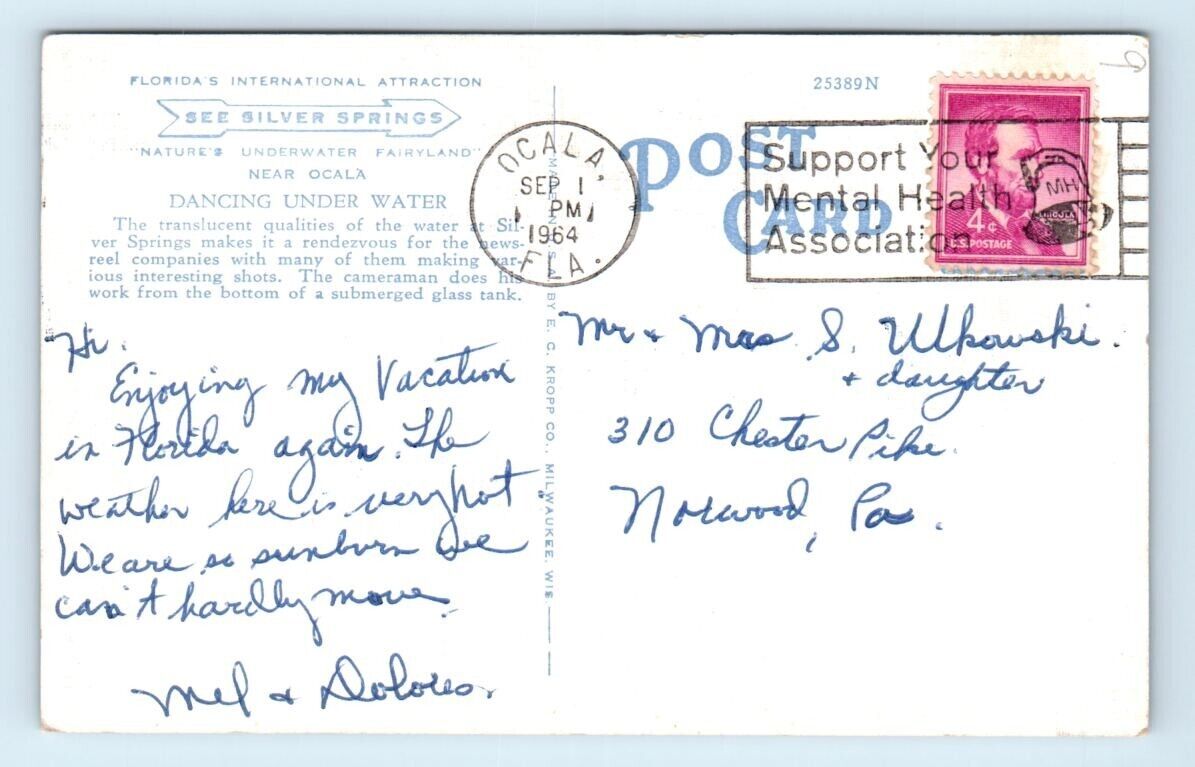 FLORIDA'S INTERNATIONAL ATTRACTION
SEE SILVER SPRINGS
"NATURE'S UNDERWATER FAIRYLAND"
NEAR OCALA
DANCING UNDER WATER
The translucent qualities of the water at Sil-
ver Springs makes it a rendezvous for the news-
reel companies with many of them making var-
ious interesting shots. The cameraman does his
work from the bottom of a submerged glass tank.
Hi.
Enjoying my Vacation
in Florida again. The
weather here is very hot
We are so sunburn we
can't hardly move.
Mel & Dolores.
MADE IN U.S.A. BY E. C. KROPP CO., MILWAUKEE, WIS.
OCALA,
SEP 1
PM
1964
FLA.
25389N
POST
CARD
Support Your
Mental Health
Association
MH
LINCOLN
4¢
U.S. POSTAGE
9
Mr & Mrs S. Ulkowski.
& daughter
310 Chester Pike.
Norwood, Pa.